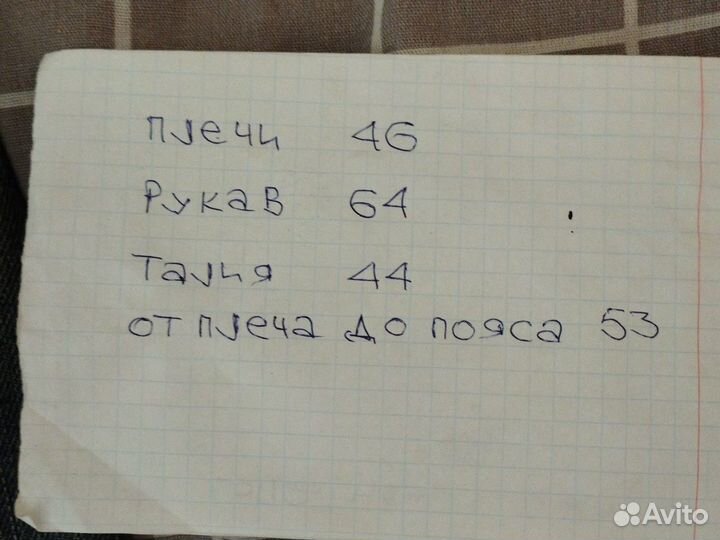 плечи 46
Рукав 64
Талия 44
от плеча до пояса 53
Avito